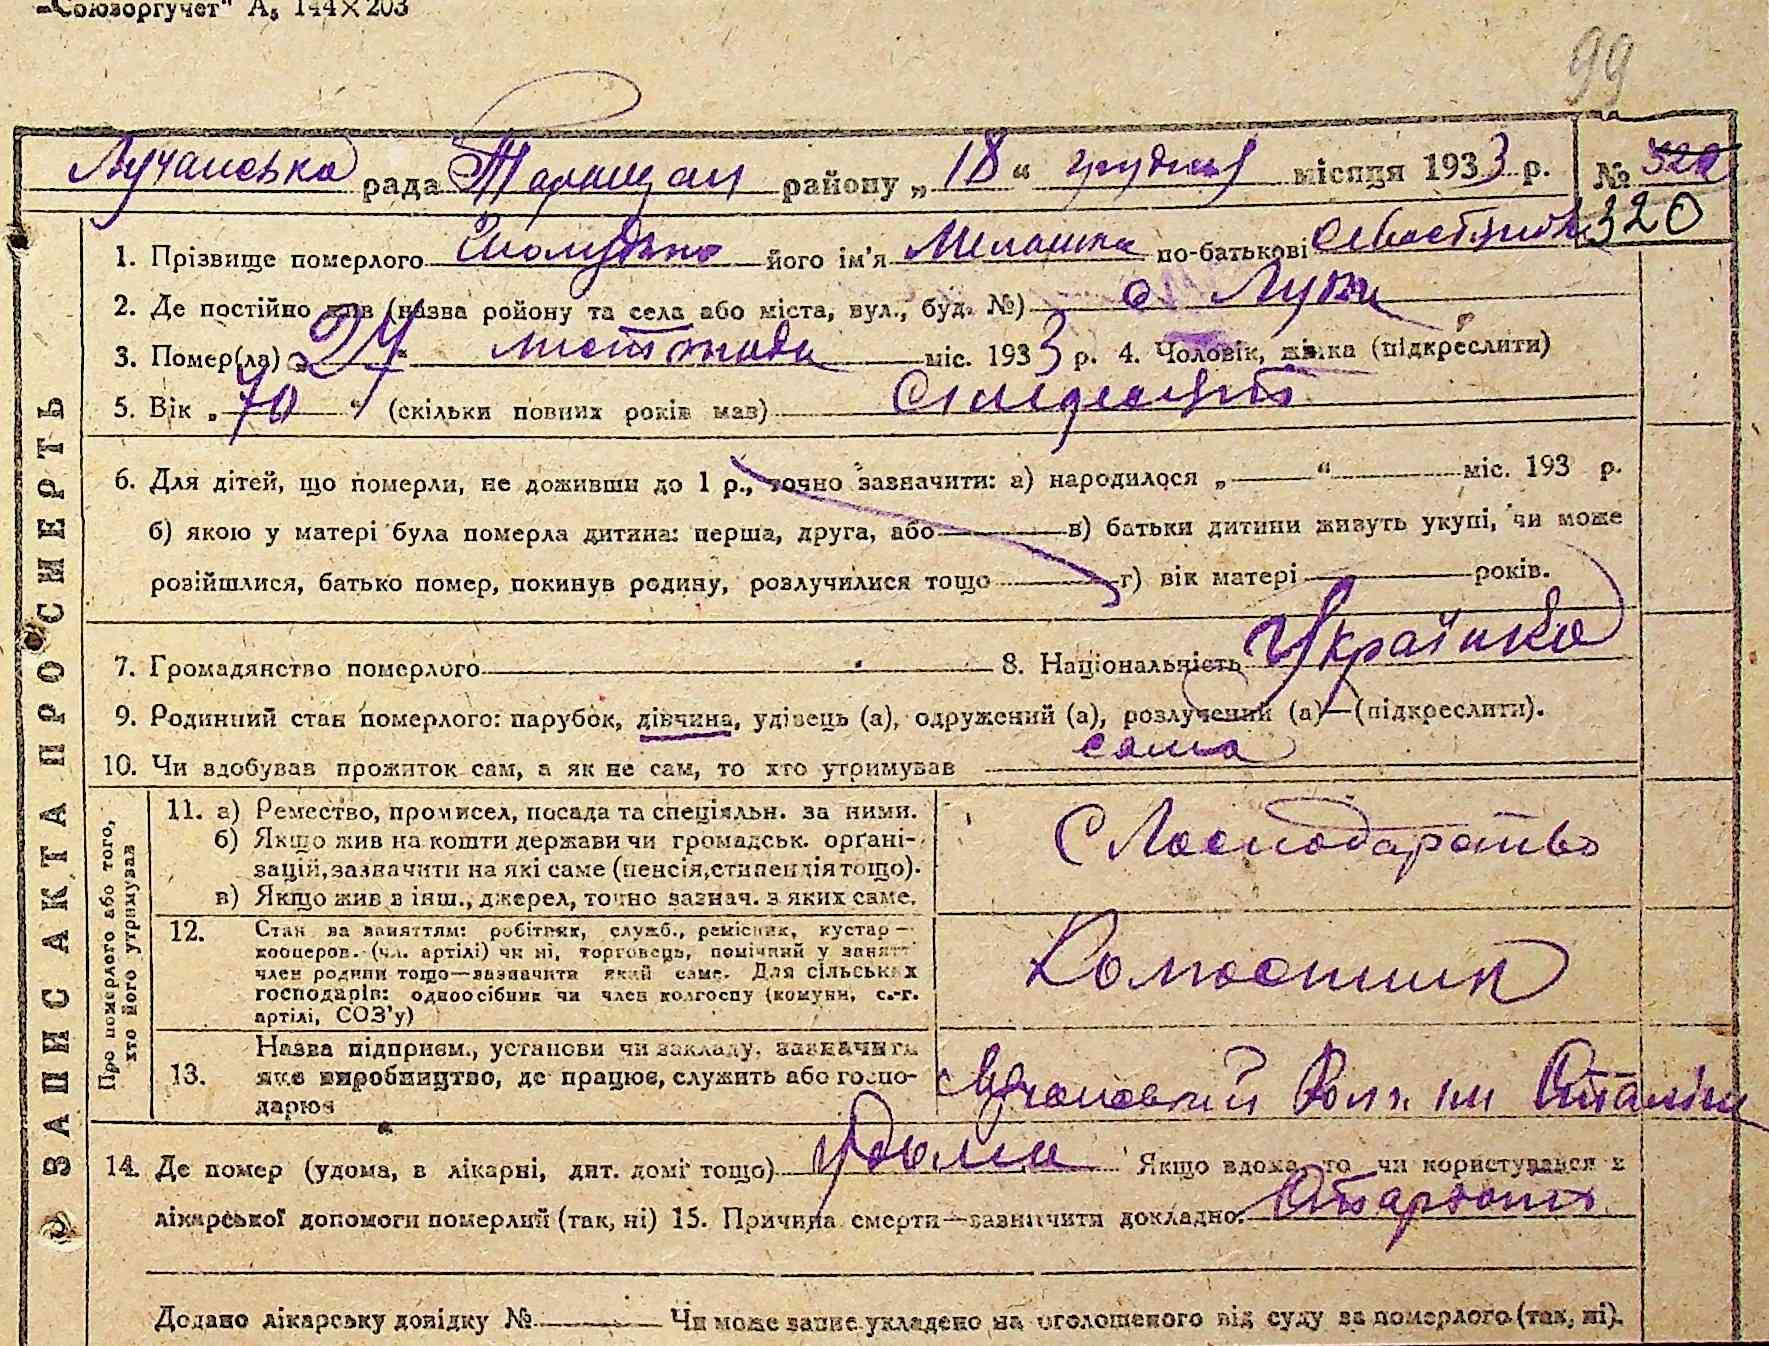 „Союзоргучет" А₅ 144×203
99
Лучанська рада Таращан району „18“ грудня місяця 1933 р. №
320
1. Прізвище померлого його ім'я Мелашка по-батькові
2. Де постійно жив (назва району та села або міста, вул., буд. №) с Лука
3. Помер(ла) „24“ листопада міс. 1933 р. 4. Чоловік, жінка (підкреслити)
5. Вік „70“ (скільки повних років мав) Сімдесят
6. Для дітей, що померли, не доживши до 1 р., точно зазначити: а) народилося „ “ міс. 193 р.
б) якою у матері була померла дитина: перша, друга, або в) батьки дитини живуть укупі, чи може
розійшлися, батько помер, покинув родину, розлучилися тощо г) вік матері років.
7. Громадянство померлого 8. Національність Українка
9. Родинний стан померлого: парубок, дівчина, удівець (а), одружений (а), розлучений (а)—(підкреслити).
10. Чи вдобував прожиток сам, а як не сам, то хто утримував сама
ЗАПИС АКТА ПРО СМЕРТЬ
Про померлого або того, хто його утримував
11. а) Ремество, промисел, посада та спеціяльн. за ними.
б) Якщо жив на кошти держави чи громадськ. орґані-
зацій, зазначити на які саме (пенсія, стипендія тощо).
в) Якщо жив з інш., джерел, точно зазнач. з яких саме.
С Господарство
12. Стан за заняттям: робітник, служб., ремісник, кустар—
кооперов. (чл. артілі) чи ні, торговець, помічний у занятт
член родини тощо—зазначити який саме. Для сільських
господарів: одноосібник чи член колгоспу (комуни, с.-г.
артілі, СОЗ'у)
Колгоспник
13. Назва підприєм., установи чи закладу, зазначити
яке виробництво, де працює, служить або госпо-
дарює
Лучанський Колг. ім Сталіна
14. Де помер (удома, в лікарні, дит. домі тощо) Удома Якщо вдома, то чи користувався з
лікарської допомоги померлий (так, ні) 15. Причина смерти—зазначити докладно. Старість
Додано лікарську довідку № Чи може запис укладено на оголошеного від суду за померлого (так, ні).